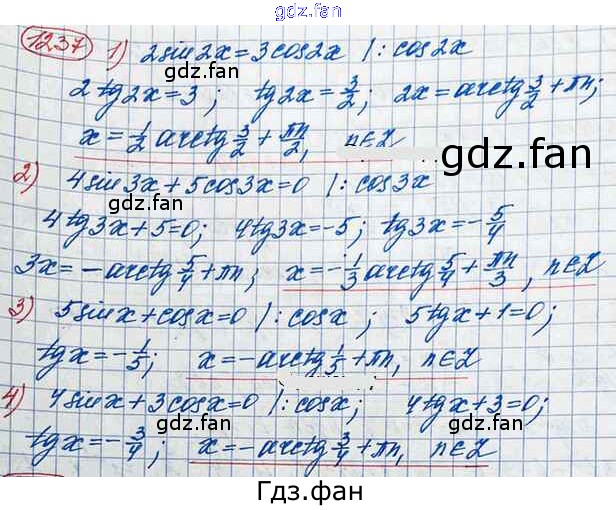 gdz.fan
1237 1) 2sin2x=3cos2x |:cos2x
gdz.fan gdz.fan
2tg2x=3; tg2x=3/2; 2x=arctg3/2+πn;
x=1/2 arctg3/2+πn/2, n∈Z
gdz.fan
2) 4sin3x+5cos3x=0 |:cos3x
4tg3x+5=0; 4tg3x=-5; tg3x=-5/4
gdz.fan gdz.fan
3x=-arctg5/4+πn; x=-1/3 arctg5/4+πn/3, n∈Z
3) 5sinx+cosx=0 |:cosx; 5tgx+1=0;
tgx=-1/5; x=-arctg1/5+πn, n∈Z
4) 4sinx+3cosx=0 |:cosx; 4tgx+3=0;
gdz.fan gdz.fan
tgx=-3/4; x=-arctg3/4+πn, n∈Z
Гдз.фан